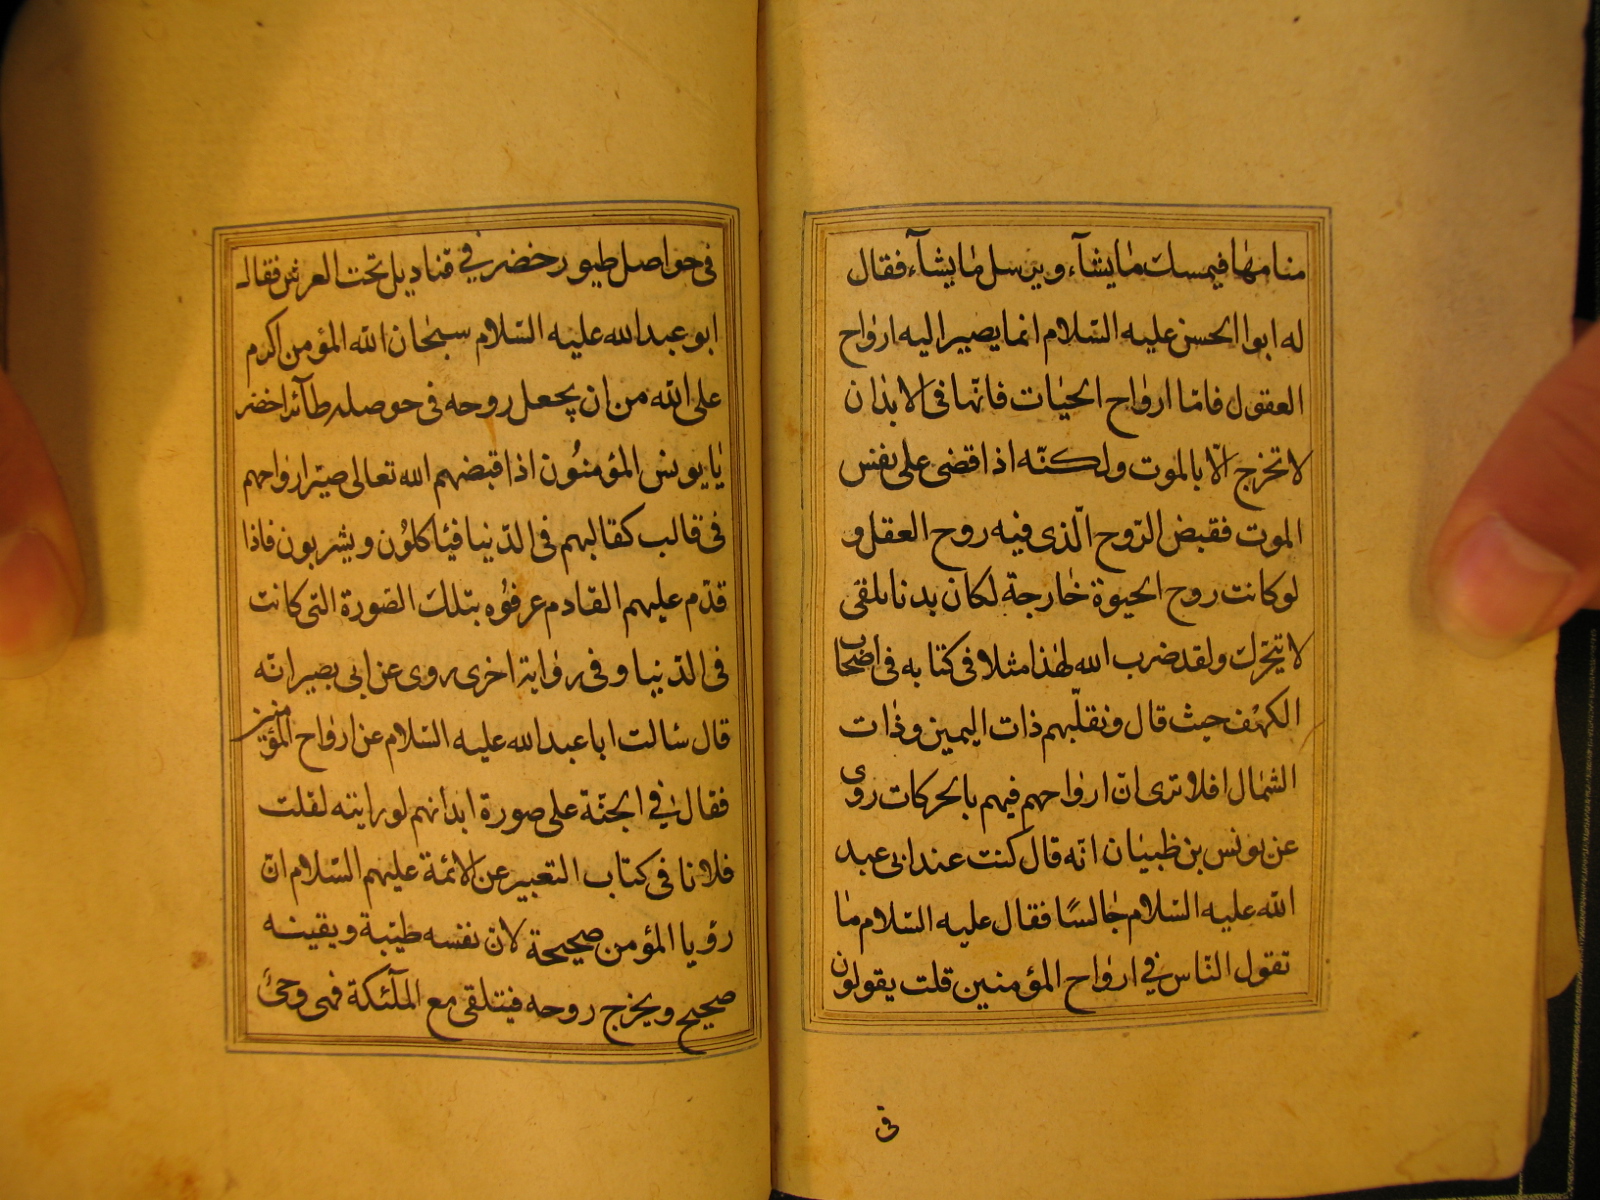 منامها فيمسك ما يشآء ويرسل ما يشآء فقال
له ابوا الحسن عليه السّلام انما يصير اليه ارواح
العقول فامّا ارواح الحيات فانّها فى الابدان
لا تخرج الّا بالموت ولكنّه اذا قضى على نفس
الموت فقبض الرّوح الّذى فيه روح العقل و
لو كانت روح الحيوة خارجة لكان بدنا ملقى
لا يتحرّك ولقد ضرب الله لهذا مثلا فى كتابه فى اصحاب
الكهف حيث قال ونقلّبهم ذات اليمين وذات
الشمال افلا ترى انّ ارواحهم فيهم بالحركات روى
عن يونس بن ظبيان انّه قال كنت عند ابى عبد
الله عليه السّلام جالسًا فقال عليه السّلام ما
تقول النّاس فى ارواح المؤمنين قلت يقولون
فى
فى حواصل طيور خضر فى قناديل تحت العرش فقال
ابو عبد الله عليه السّلام سبحان الله المؤمن اكرم
على الله من ان يجعل روحه فى حوصلة طآئر اخضر
يا يونس المؤمنون اذا قبضهم الله تعالى صيّر ارواحهم
فى قالب كقالبهم فى الدّنيا فيأكلون ويشربون فاذا
قدّم عليهم القادم عرفوه بتلك الصّورة التى كانت
فى الدّنيا وفى رواية اخرى روى عن ابى بصير انّه
قال سالت ابا عبد الله عليه السّلام عن ارواح المؤمنين
فقال فى الجنّة على صورة ابدانهم لو رايته لقلت
فلانا فى كتاب التعبير عن الائمة عليهم السّلام انّ
رؤيا المؤمن صحيحة لانّ نفسه طيّبة ويقينه
صحيح ويخرج روحه فيتلقى مع الملآئكة فهى وحى